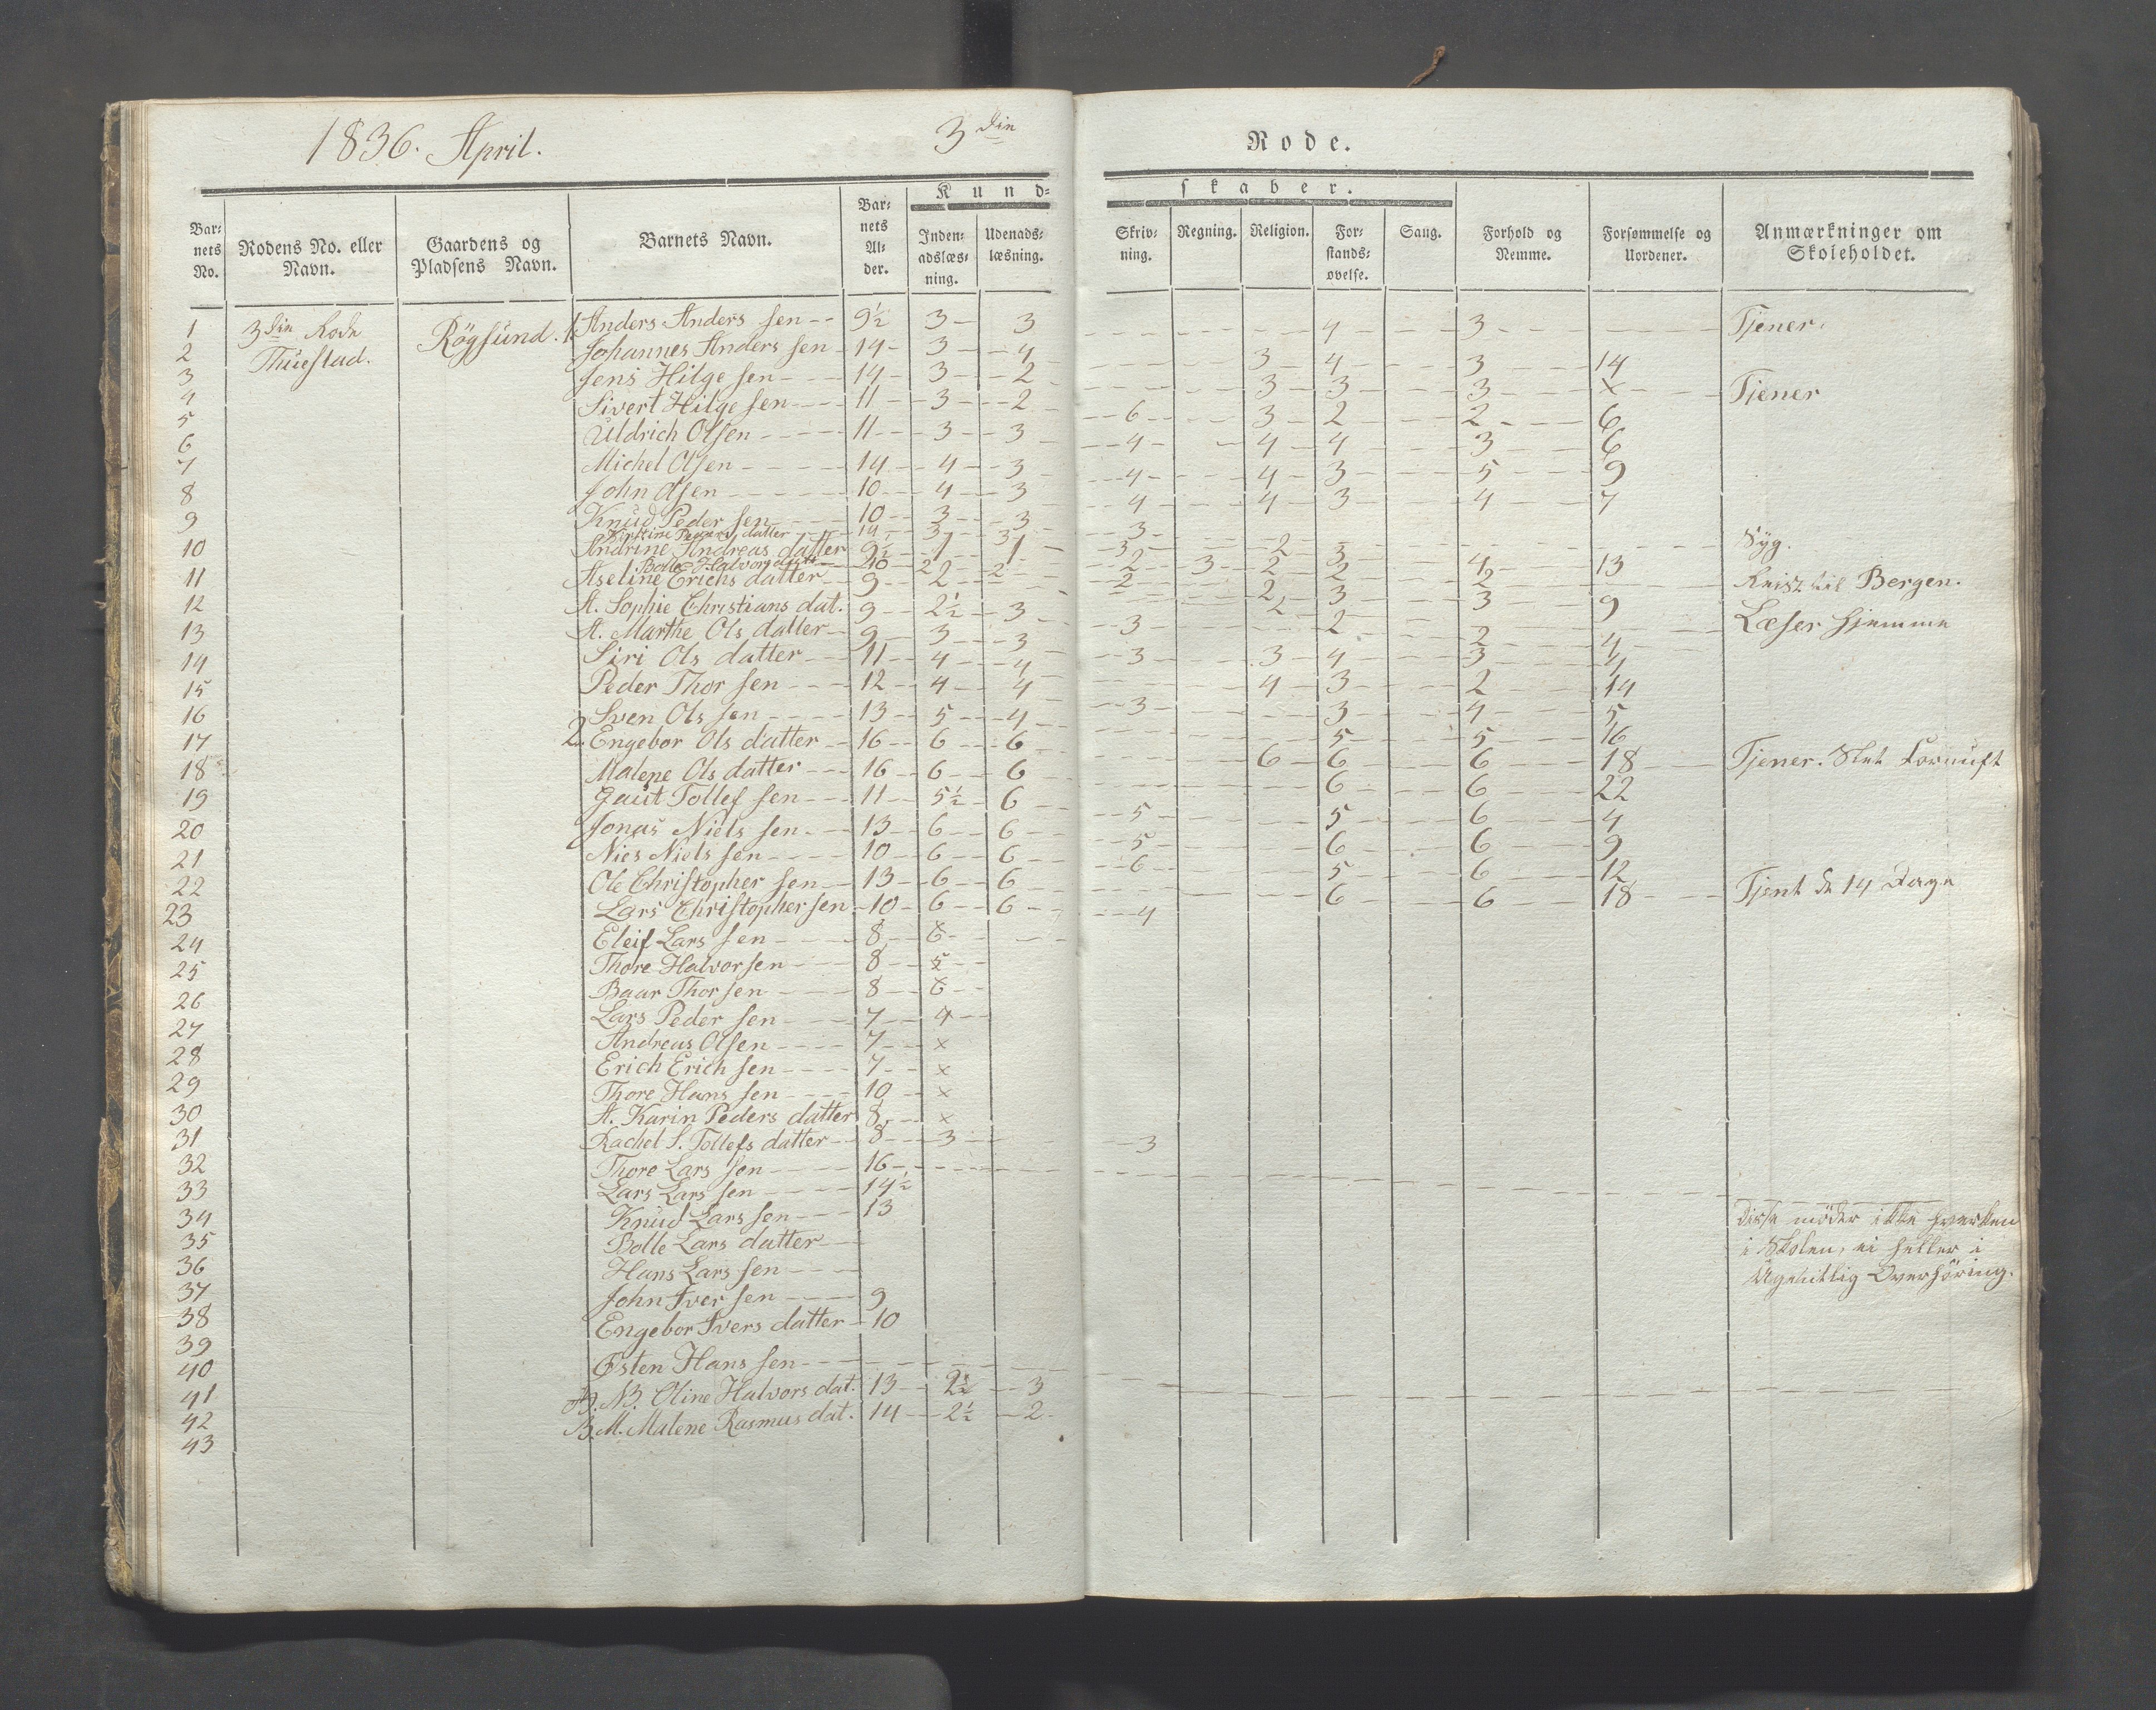 1836. April. 3die Rode.
Kundskaber.
Barnets No. Rodens No. eller Navn. Gaardens og Pladsens Navn. Barnets Navn. Barnets Alder. Indenadslæsning. Udenadslæsning. Skrivning. Regning. Religion. Forstandsøvelse. Sang. Forhold og Nemme. Forsømmelse og Uordener. Anmærkninger om Skoleholdet.
1 3die Rode Rögsund. 1. Anders Anders sen 9½ 3 3 4 3 Tjener.
2 Thuestad. Johannes Anders sen 14 3 4 3 4 3 14
3 Jens Hilge sen 14 3 2 3 3 3 x Tjener
4 Sivert Hilge sen 11 3 2 6 3 2 2 6
5 Uldrich Olsen 11 3 3 4 4 4 3 6
6 Michel Olsen 14 4 3 4 4 3 5 9
7 John Olsen 10 4 3 4 4 3 4 7
8 Knud Peder sen 10 3 3 3
Peders datter 14 3 3 3 2 Syg.
9 Andrine Andreas datter 9½ 1 1 2 3 2 3 4 13
Bolle Halvors datter 10 2 2
10 Aseline Erichs datter 9 2 2 2 2 2 Reist til Bergen.
11 A. Sophie Christians dat. 9 2½ 3 2 3 3 9
12 A. Marthe Ols datter 9 3 3 3 2 Læser hjemme
13 Siri Ols datter 11 4 4 3 3 4 2 4
14 Peder Thor sen 12 4 4 4 3 3 4
15 Sven Ols sen 13 5 4 3 3 2 14
16 2. Engebor Ols datter 16 6 6 5 4 5
17 Malene Ols datter 16 6 6 6 6 5 16
18 Gaut Tollef sen 11 5½ 6 5 6 6 18 Tjener. Slet Fornuft
19 Jonas Niels sen 13 6 6 5 5 6 22
20 Nies Niels sen 10 6 6 6 6 6 4
21 Ole Christopher sen 13 6 6 5 6 9
22 Lars Christopher sen 10 6 6 4 6 6 12
23 Eleif Lars sen 8 6 18 Tjent de 14 Dage
24 Thore Halvorsen 8 5
25 Baar Thor sen 8 6
26 Lars Peder sen 7 4
27 Andreas Olsen 7 x
28 Erich Erich sen 7 x
29 Thore Hans sen 10 x
30 A. Karin Peders datter 8 x
31 Rachel S. Tollefs datter 8 3 3
32 Thore Lars sen 16
33 Lars Lars sen 14½
34 Knud Lars sen 13 Disse möder ikke hverken
35 Bolle Lars datter i Skolen, ei heller i
36 Hans Lars sen Ugentlig Overhöring.
37 John Iver sen 9
38 Engebor Ivers datter 10
39
40 Østen Hans sen
41 A. N. Oline Halvors dat. 13 2½ 3
42 B. M. Malene Rasmus dat. 14 2½ 2
43